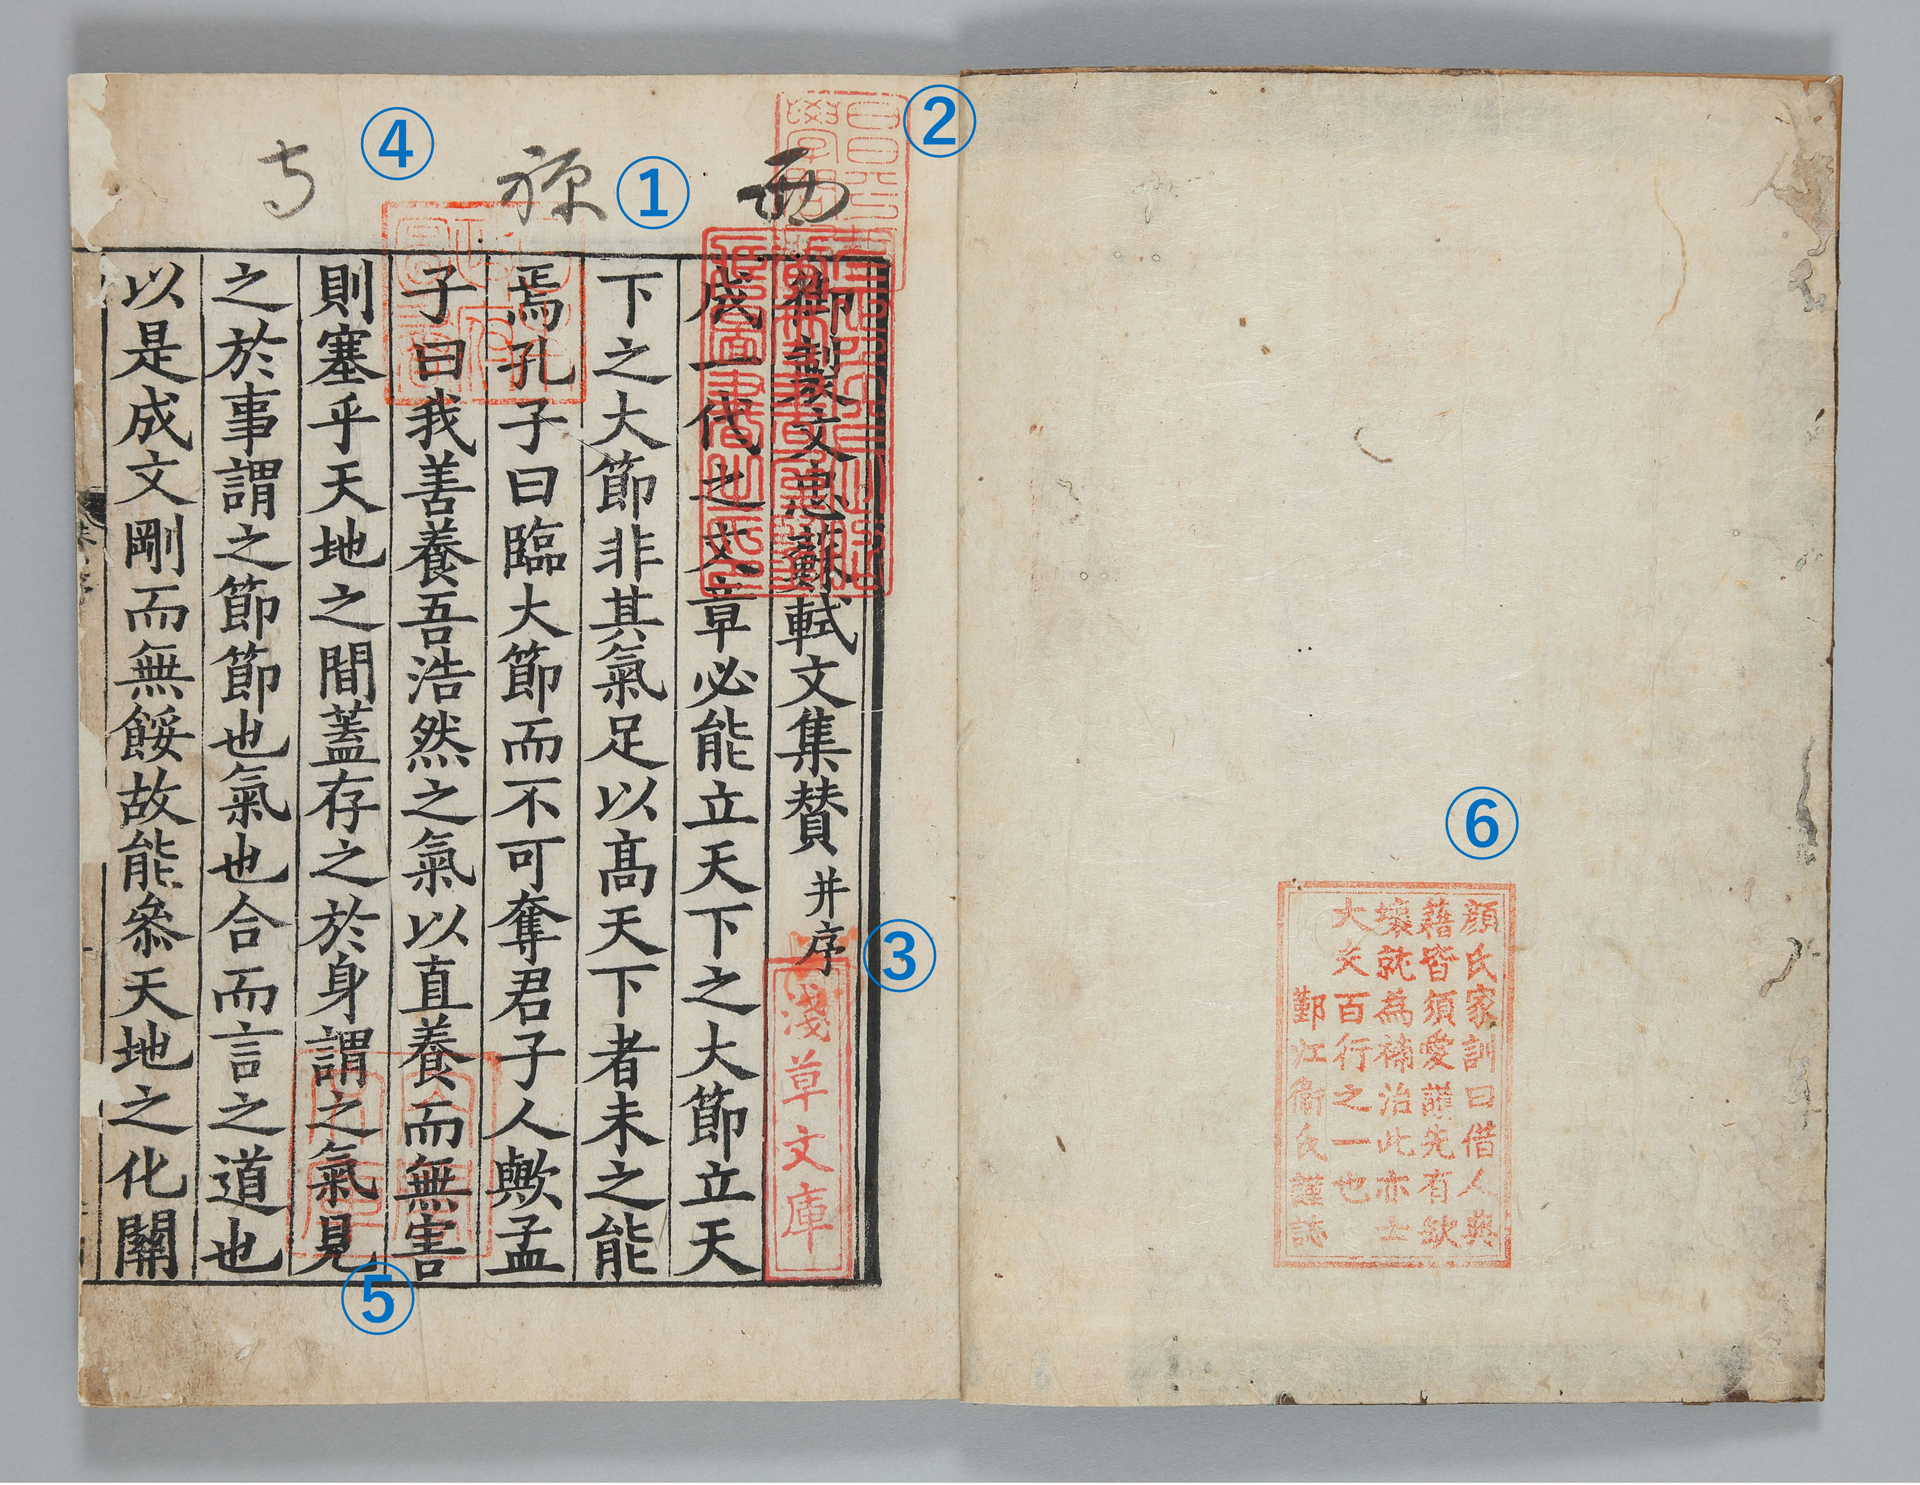 ⑥
顔氏家訓曰借人典
藉皆須愛護先有缺
壞就為補治此亦士
大夫百行之一也
鄞江衞氏謹誌
②
昌平坂
學問所
西
①
寺
④
御製文忠蘇軾文集賛 并序
成一代之文章必能立天下之大節立天
下之大節非其氣足以髙天下者未之能
焉孔子曰臨大節而不可奪君子人歟孟
子曰我善養吾浩然之氣以直養而無害
則塞乎天地之間蓋存之於身謂之氣見
之於事謂之節節也氣也合而言之道也
以是成文剛而無餒故能叅天地之化關
③
淺草文庫
⑤